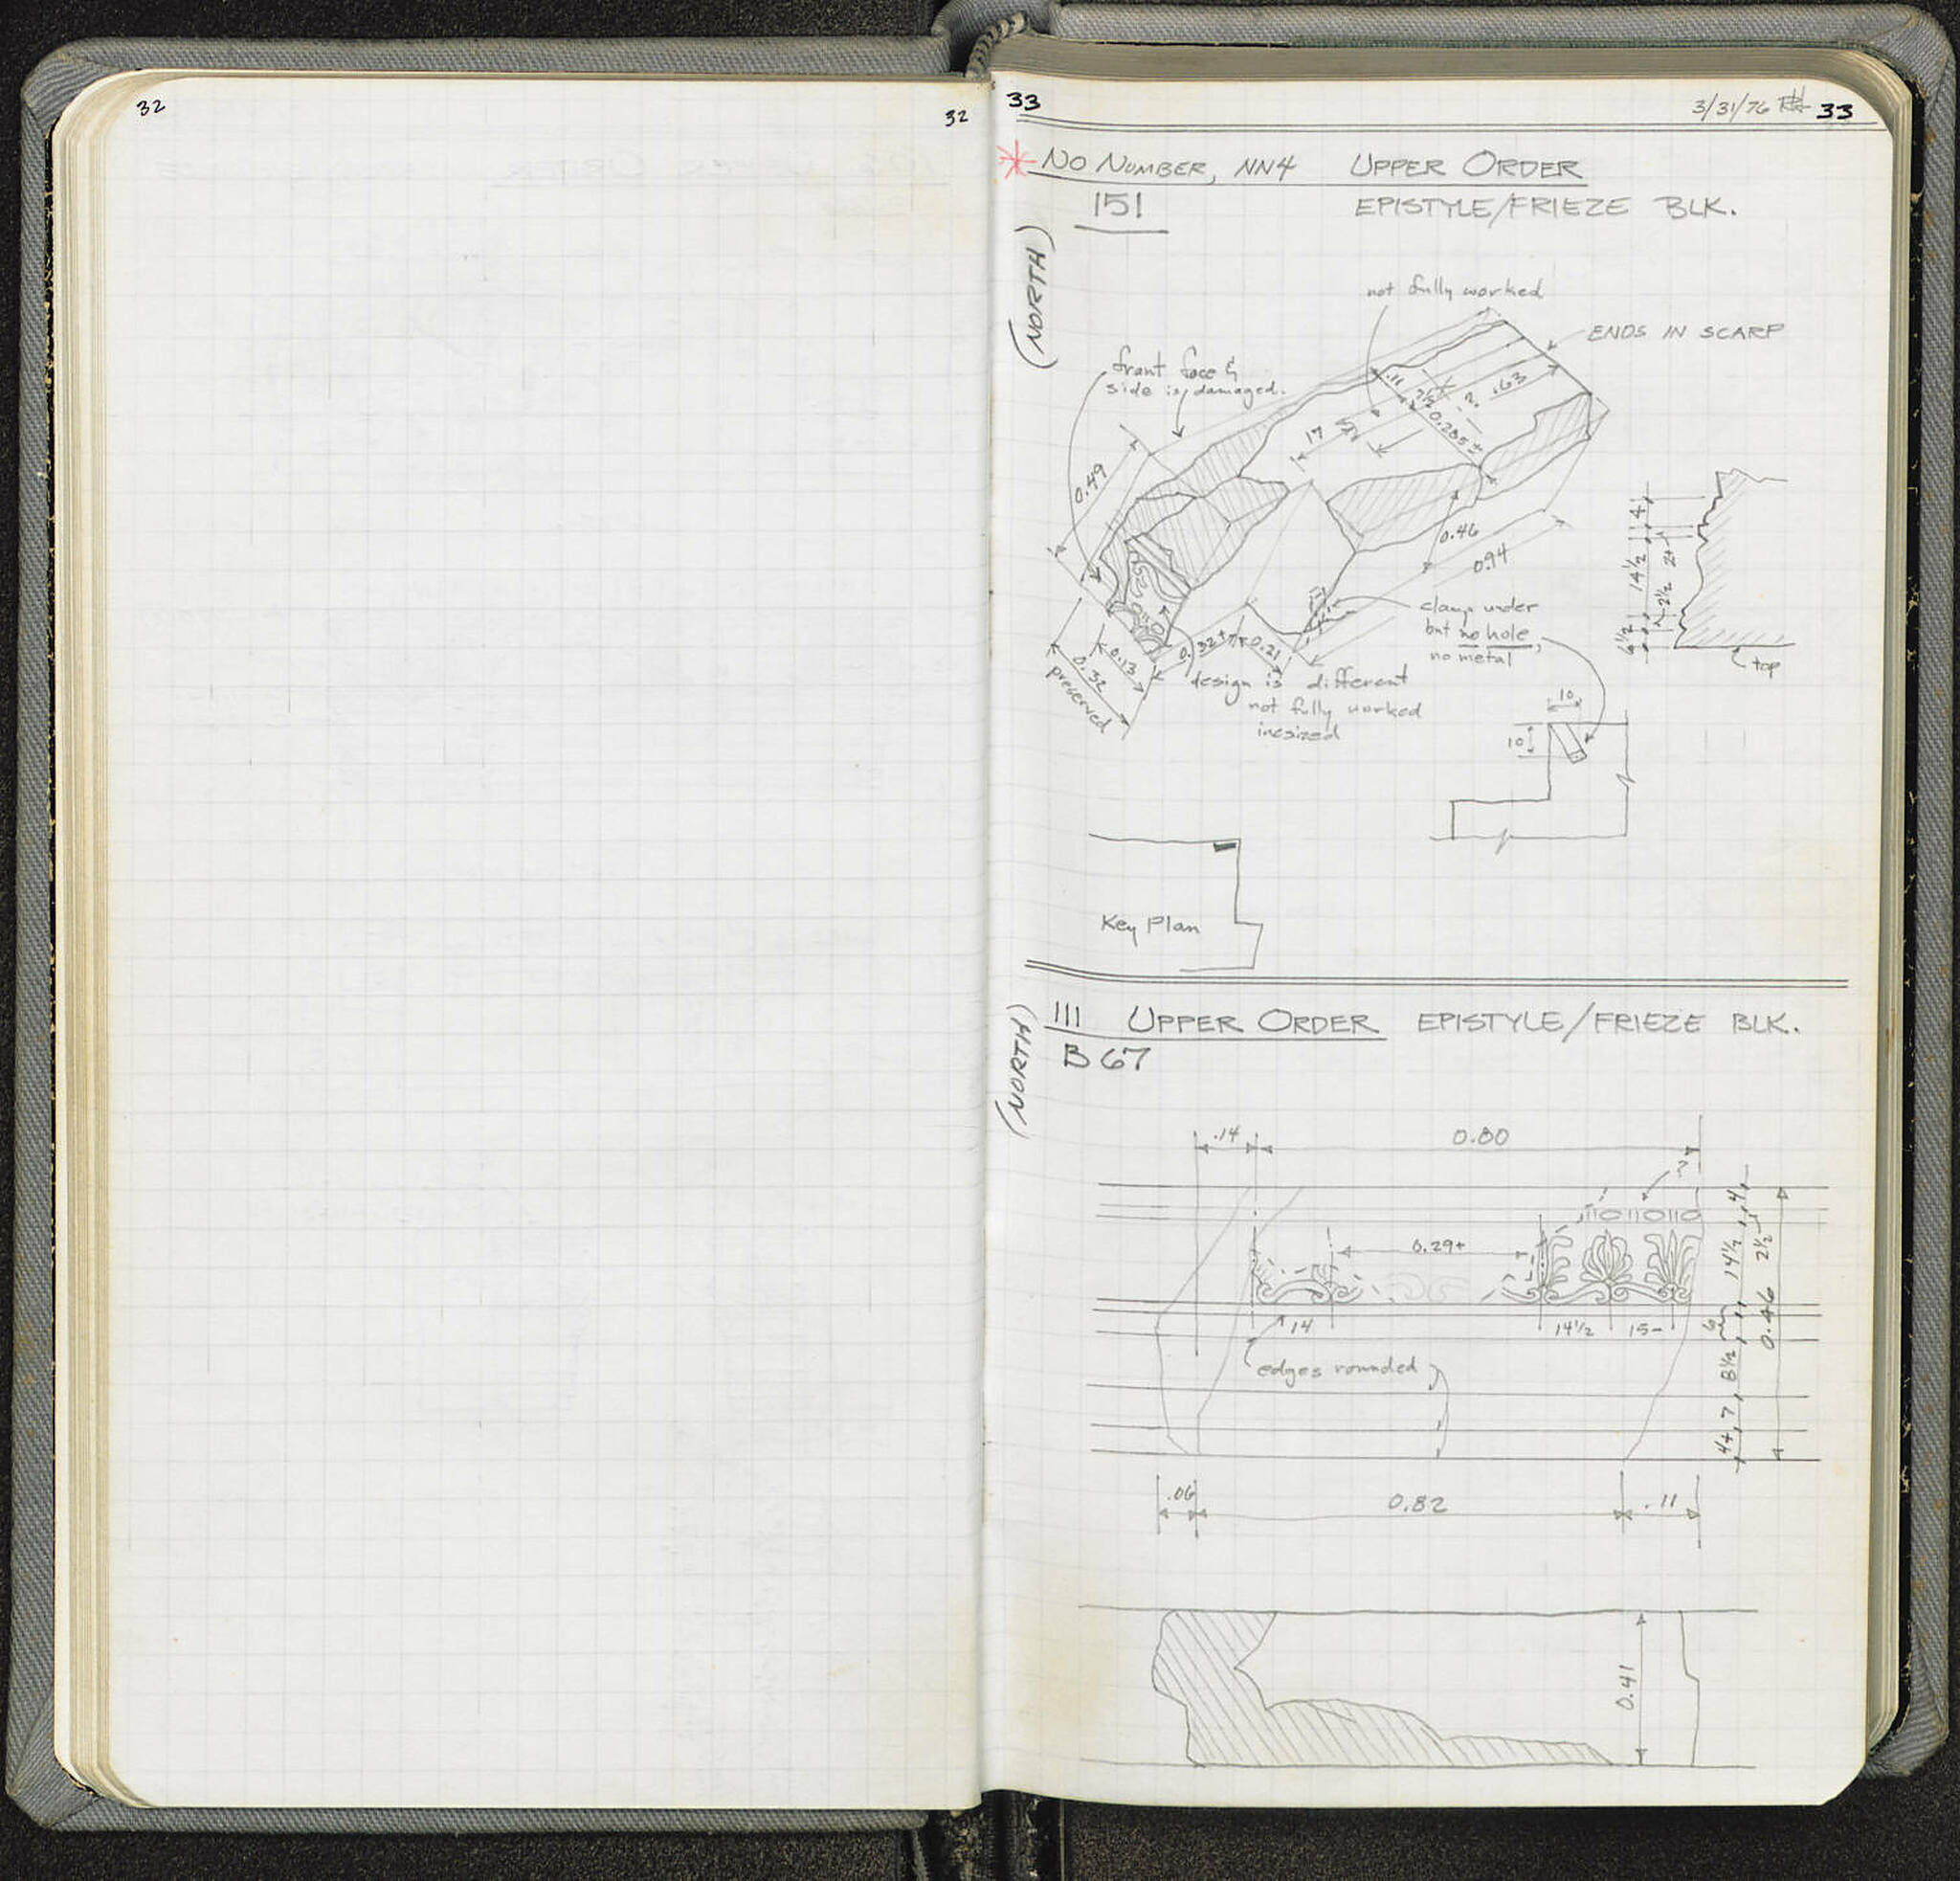 32
32
33
3/31/76
33
* NO NUMBER, NN4 UPPER ORDER
151 EPISTYLE/FRIEZE BLK.
(NORTH)
not fully worked
ENDS IN SCARP
front face &
side is damaged.
.11
7½
2.
.63
0.285±
17
0.49
0.46
0.94
4
14½
2+
2½
6½
top
clamp under
but no hole,
no metal
0.32+
0.21
0.13
0.32
preserved
design is different
not fully worked
incsized
10
10
Key Plan
(NORTH)
111 UPPER ORDER EPISTYLE/FRIEZE BLK.
B67
.14
0.80
?
0.29+
14
14½
15-
edges rounded
4
14½
2½
8½
7
4+
0.46
.06
0.82
.11
0.41